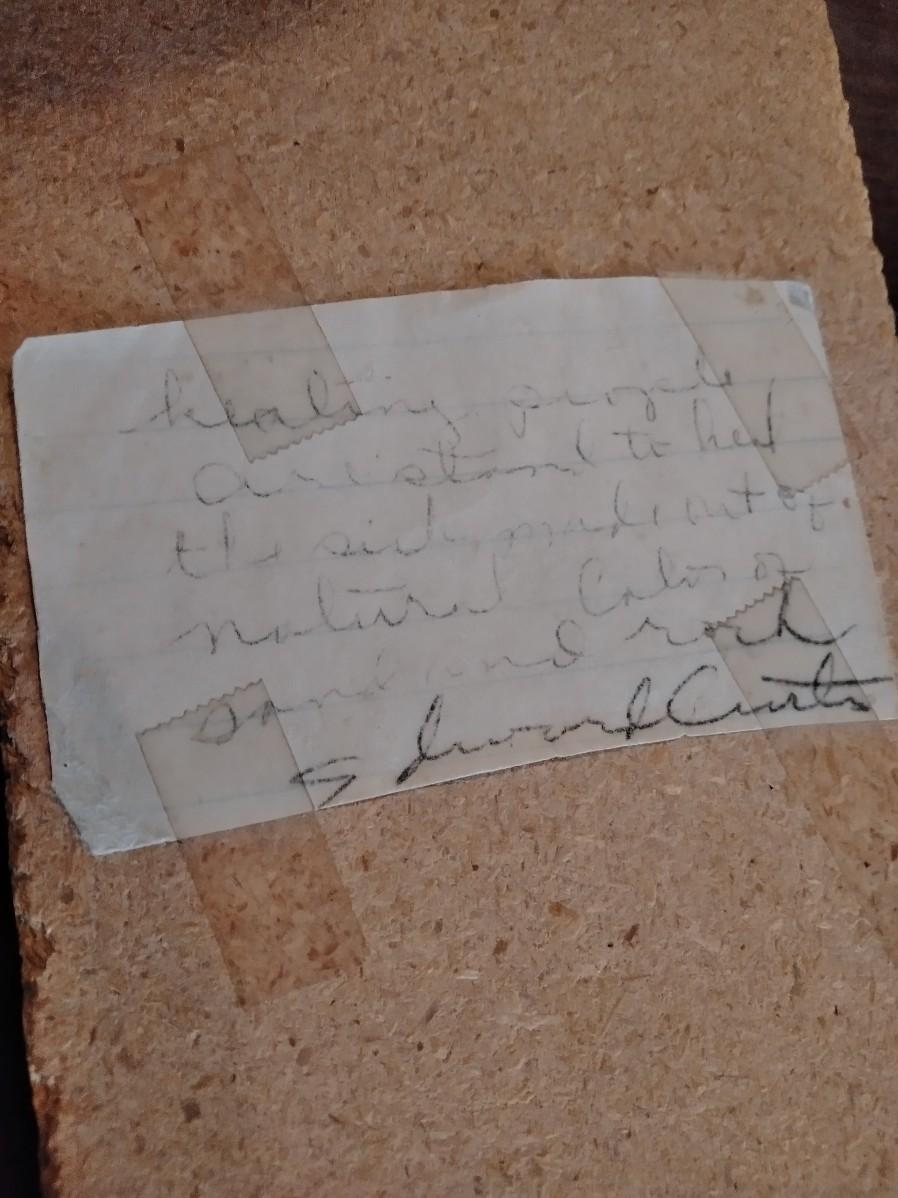 healing people
assistant to heal
the sick, made out of
natural Color of
sand and rock
Edward Curts